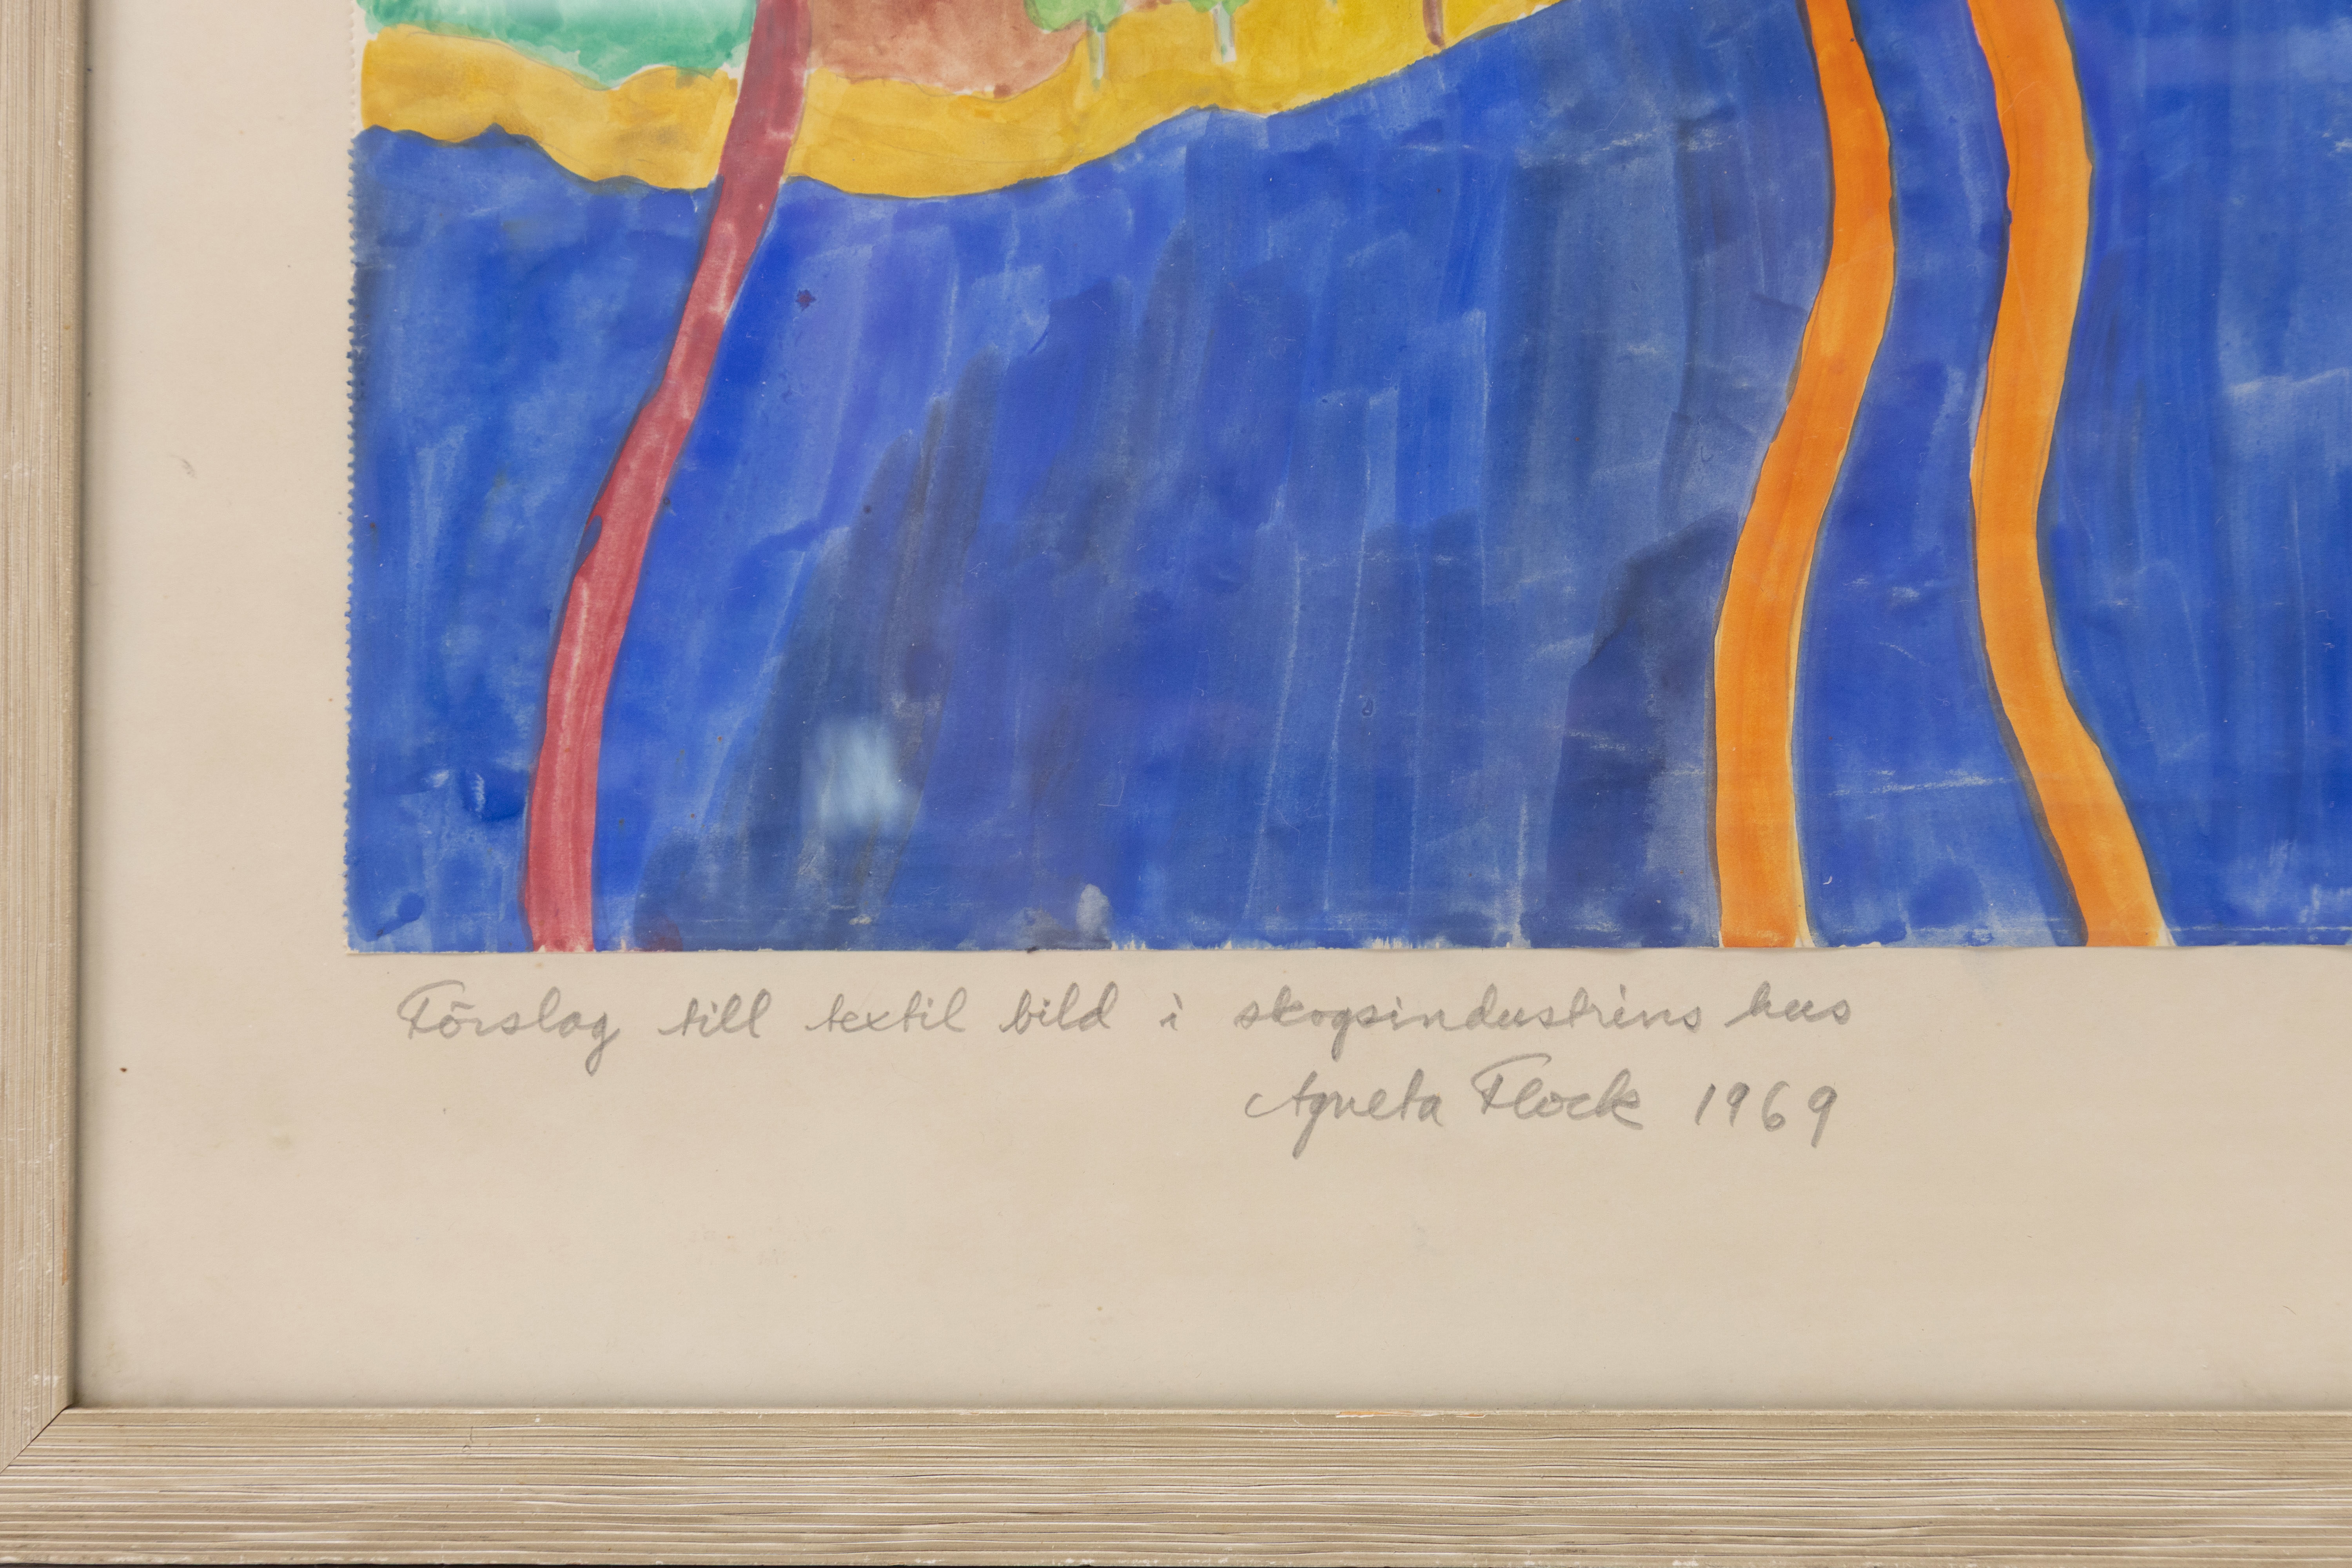 Förslag till textil bild i skogsindustrins hus
Agneta Flock 1969